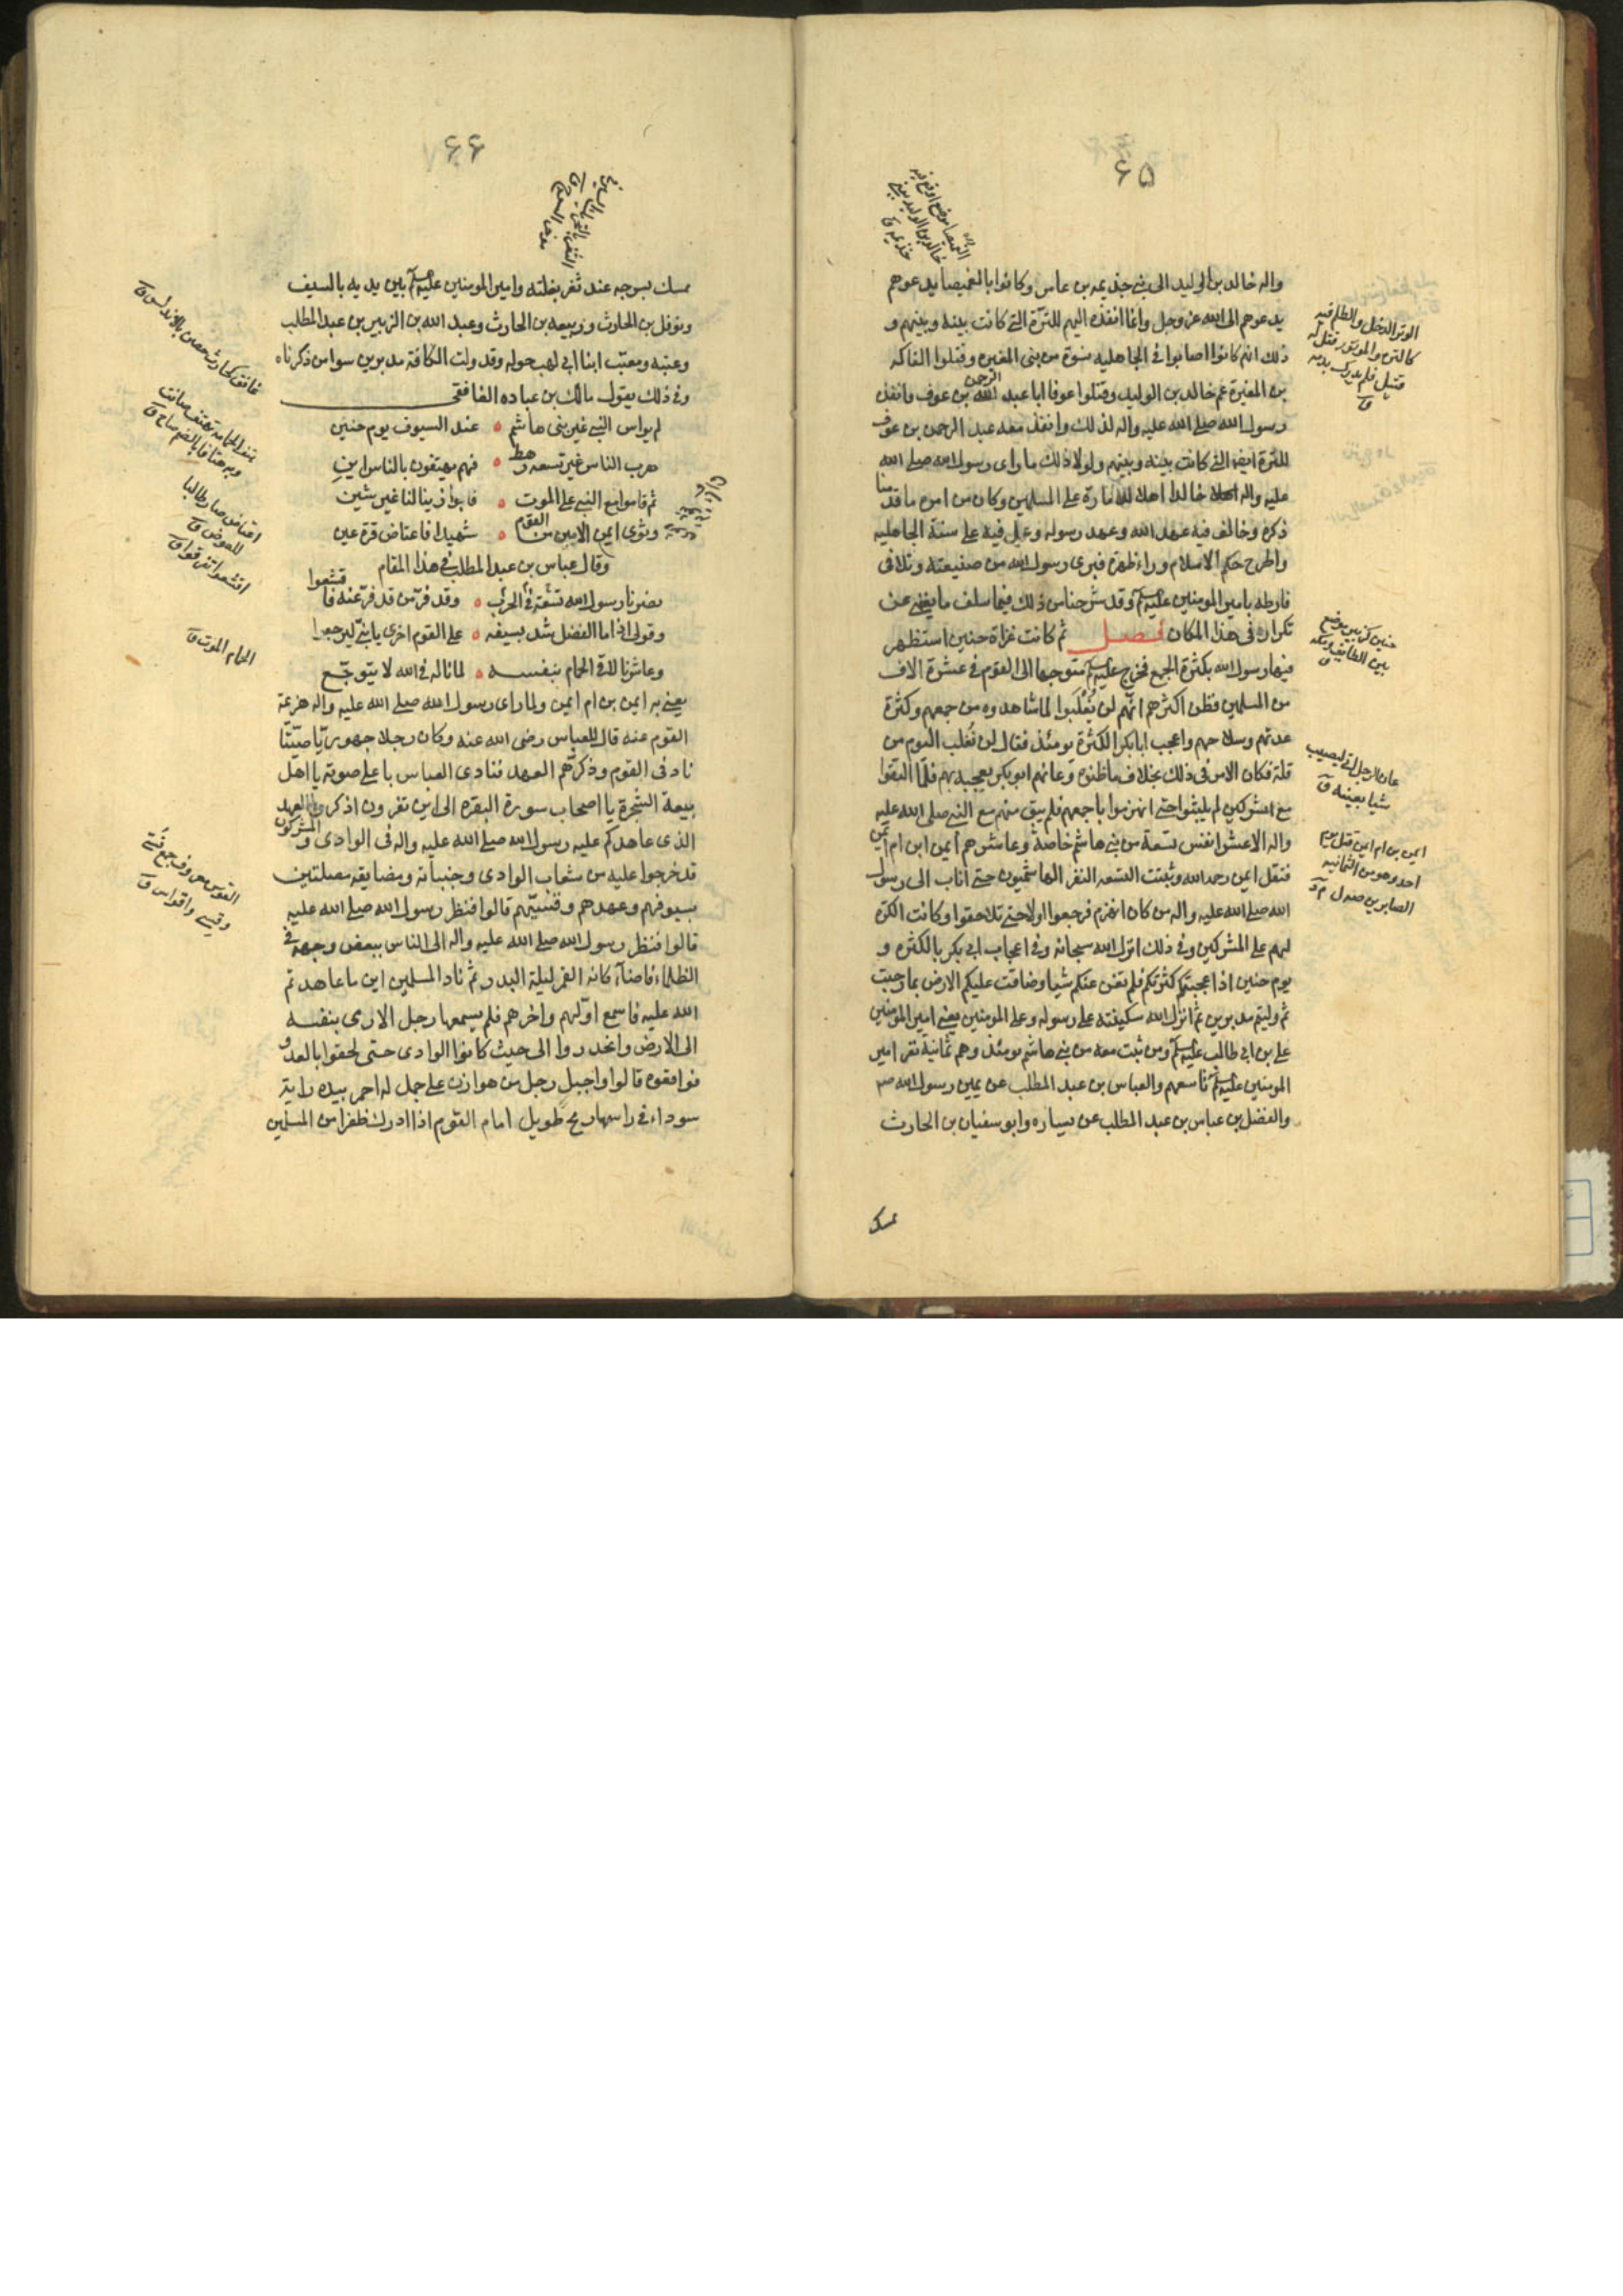 ۶۵
واله خالد بن الوليد الى بنى جذيمه بن عامر وكانوا بالغميصا يدعوهم
يدعوهم الى الله عز وجل وانما انفذه اليهم للترة التى كانت بينه وبينهم و
ذلك انهم كانوا اصابوا فى الجاهليه نسوة من بنى المغيره وقتلوا الفاكه
بن المغيرة عم خالد بن الوليد وقتلوا عوفا ابا عبد الرحمن بن عوف وانفذه
رسول الله صلى الله عليه واله لذلك وانفذ معه عبد الرحمن بن عوف
للترة ايضا التى كانت بينه وبينهم ولولا ذلك ما راى رسول الله صلى الله
عليه واله خالدا اهلا للامارة على المسلمين وكان من امره ما قدمنا
ذكره وخالف فيه عهد الله وعهد رسوله وعمل فيه على سنة الجاهليه
واطرح حكم الاسلام وراء ظهره فبرى رسول الله من صنيعته وتلافى
فارطه بامير المومنين عليه السلم وقد شرحنا من ذلك فيما سلف ما يغنى عن
تكراره فى هذا المكان فصل ثم كانت غزاة حنين استظهر
فيها رسول الله بكثرة الجمع فخرج عليه السلم متوجها الى القوم فى عشرة الاف
من المسلمين فظن اكثرهم انهم لن يُغْلَبوا لما شاهدوه من جمعهم وكثرة
عدتهم وسلاحهم واعجب ابا بكر الكثرة يومئذ فقال لن نُغلب اليوم من
قلة فكان الامر فى ذلك بخلاف ما ظنوه وعانهم ابو بكر بعجبه بهم فلما التقوا
مع المشركين لم يلبثوا حتى انهزموا باجمعهم فلم يبق منهم مع النبى صلى الله عليه
واله الا عشرة انفس تسعة من بنى هاشم خاصة وعاشرهم ايمن ابن ام ايمن
فقتل ايمن رحمه الله وثبتت التسعه النفر الهاشميون حتى اناب الى رسول
الله صلى الله عليه واله من كان انهزم فرجعوا اولا حتى تلاحقوا وكانت الكرة
لهم على المشركين وفى ذلك انزل الله سبحانه وفى اعجاب ابى بكر بالكثره و
يوم حنين اذ اعجبتكم كثرتكم فلم تغن عنكم شيا وضاقت عليكم الارض بما رحبت
ثم وليتم مدبرين ثم انزل الله سكينته على رسوله وعلى المومنين يعنى امير المومنين
على بن ابى طالب عليه السلم ومن ثبت معه من بنى هاشم يومئذ وهم ثمانية نفر امير
المومنين عليه السلم تاسعهم والعباس بن عبد المطلب عن يمين رسول الله ص
والفضل بن عباس بن عبد المطلب عن يساره وابو سفيان بن الحارث
يمسك
حنين كزبير موضع
بين الطايف ومكه
عان الرجل اتى ليصيب
شيا بعينه ق
ايمن بن ام ايمن قتل يوم
احد وهو من الثمانيه
الصابرين
۶۶
يمسك بسرجه عند ثغر بغلته وامير المومنين عليه السلم بين يديه بالسيف
ونوفل بن الحارث وربيعه بن الحارث وعبد الله بن الزبير بن عبد المطلب
وعتبه ومعتب ابنا ابى لهب حوله وقد ولت الكافة مدبرين سوا من ذكرناه
وفى ذلك يقول مالك بن عباده الغافقى
لم يواس النبى غير بنى هاشم ه عند السيوف يوم حنين
هرب الناس غير تسعه رهط ه فهم يهتفون بالناس اين
ثم قاموا مع النبى على الموت ه فابوا زينا لنا غير شين
وثوى ايمن الامين من القوم ه شهيدا فاعتاض قرة عين
وقال عباس بن عبد المطلب فى هذا المقام
نصرنا رسول الله تسعة فى الحرب ه وقد فر من قد فر عنه فاقشعوا
وقولى اذا ما الفضل شد بسيفه ه على القوم اخرى يا بنى ليرجعوا
وعاشرنا لاقى الحمام بنفسه ه لما ناله فى الله لا يتوجع
يعنى به ايمن بن ام ايمن ولما راى رسول الله صلى الله عليه واله هزيمة
القوم عنه قال للعباس رضى الله عنه وكان رجلا جهوريا صيتا
ناد فى القوم وذكرهم العهد فنادى العباس باعلى صوته يا اهل
بيعة الشجرة يا اصحاب سورة البقره الى اين تفرون اذكروا العهد
الذى عاهدكم عليه رسول الله صلى الله عليه واله فى الوادى والمشركون
قد خرجوا عليه من شعاب الوادى وجنباته ومضايقه مصلتين
بسيوفهم وعمدهم وقسيهم قالوا فنظر رسول الله صلى الله عليه
قالوا فنظر رسول الله صلى الله عليه واله الى الناس ببعض وجهه فى
الظلماء فاضاء كانه القمر ليلة البدر ثم ناد المسلمين اين ما عاهدتم
الله عليه فاسمع اولهم واخرهم فلم يسمعها رجل الا رمى بنفسه
الى الارض وانحدروا الى حيث كانوا الوادى حتى لحقوا بالعدو
فوافقوه قالوا واجبل رجل من هوازن على جمل له احمر بيده راية
سوداء فى راسها رمح طويل امام القوم اذا ادرك ظفرا من المسلمين
اعتاض صار طالبا
للعوض ق
اقشعوا تفرقوا ق
الحمام الموت ق